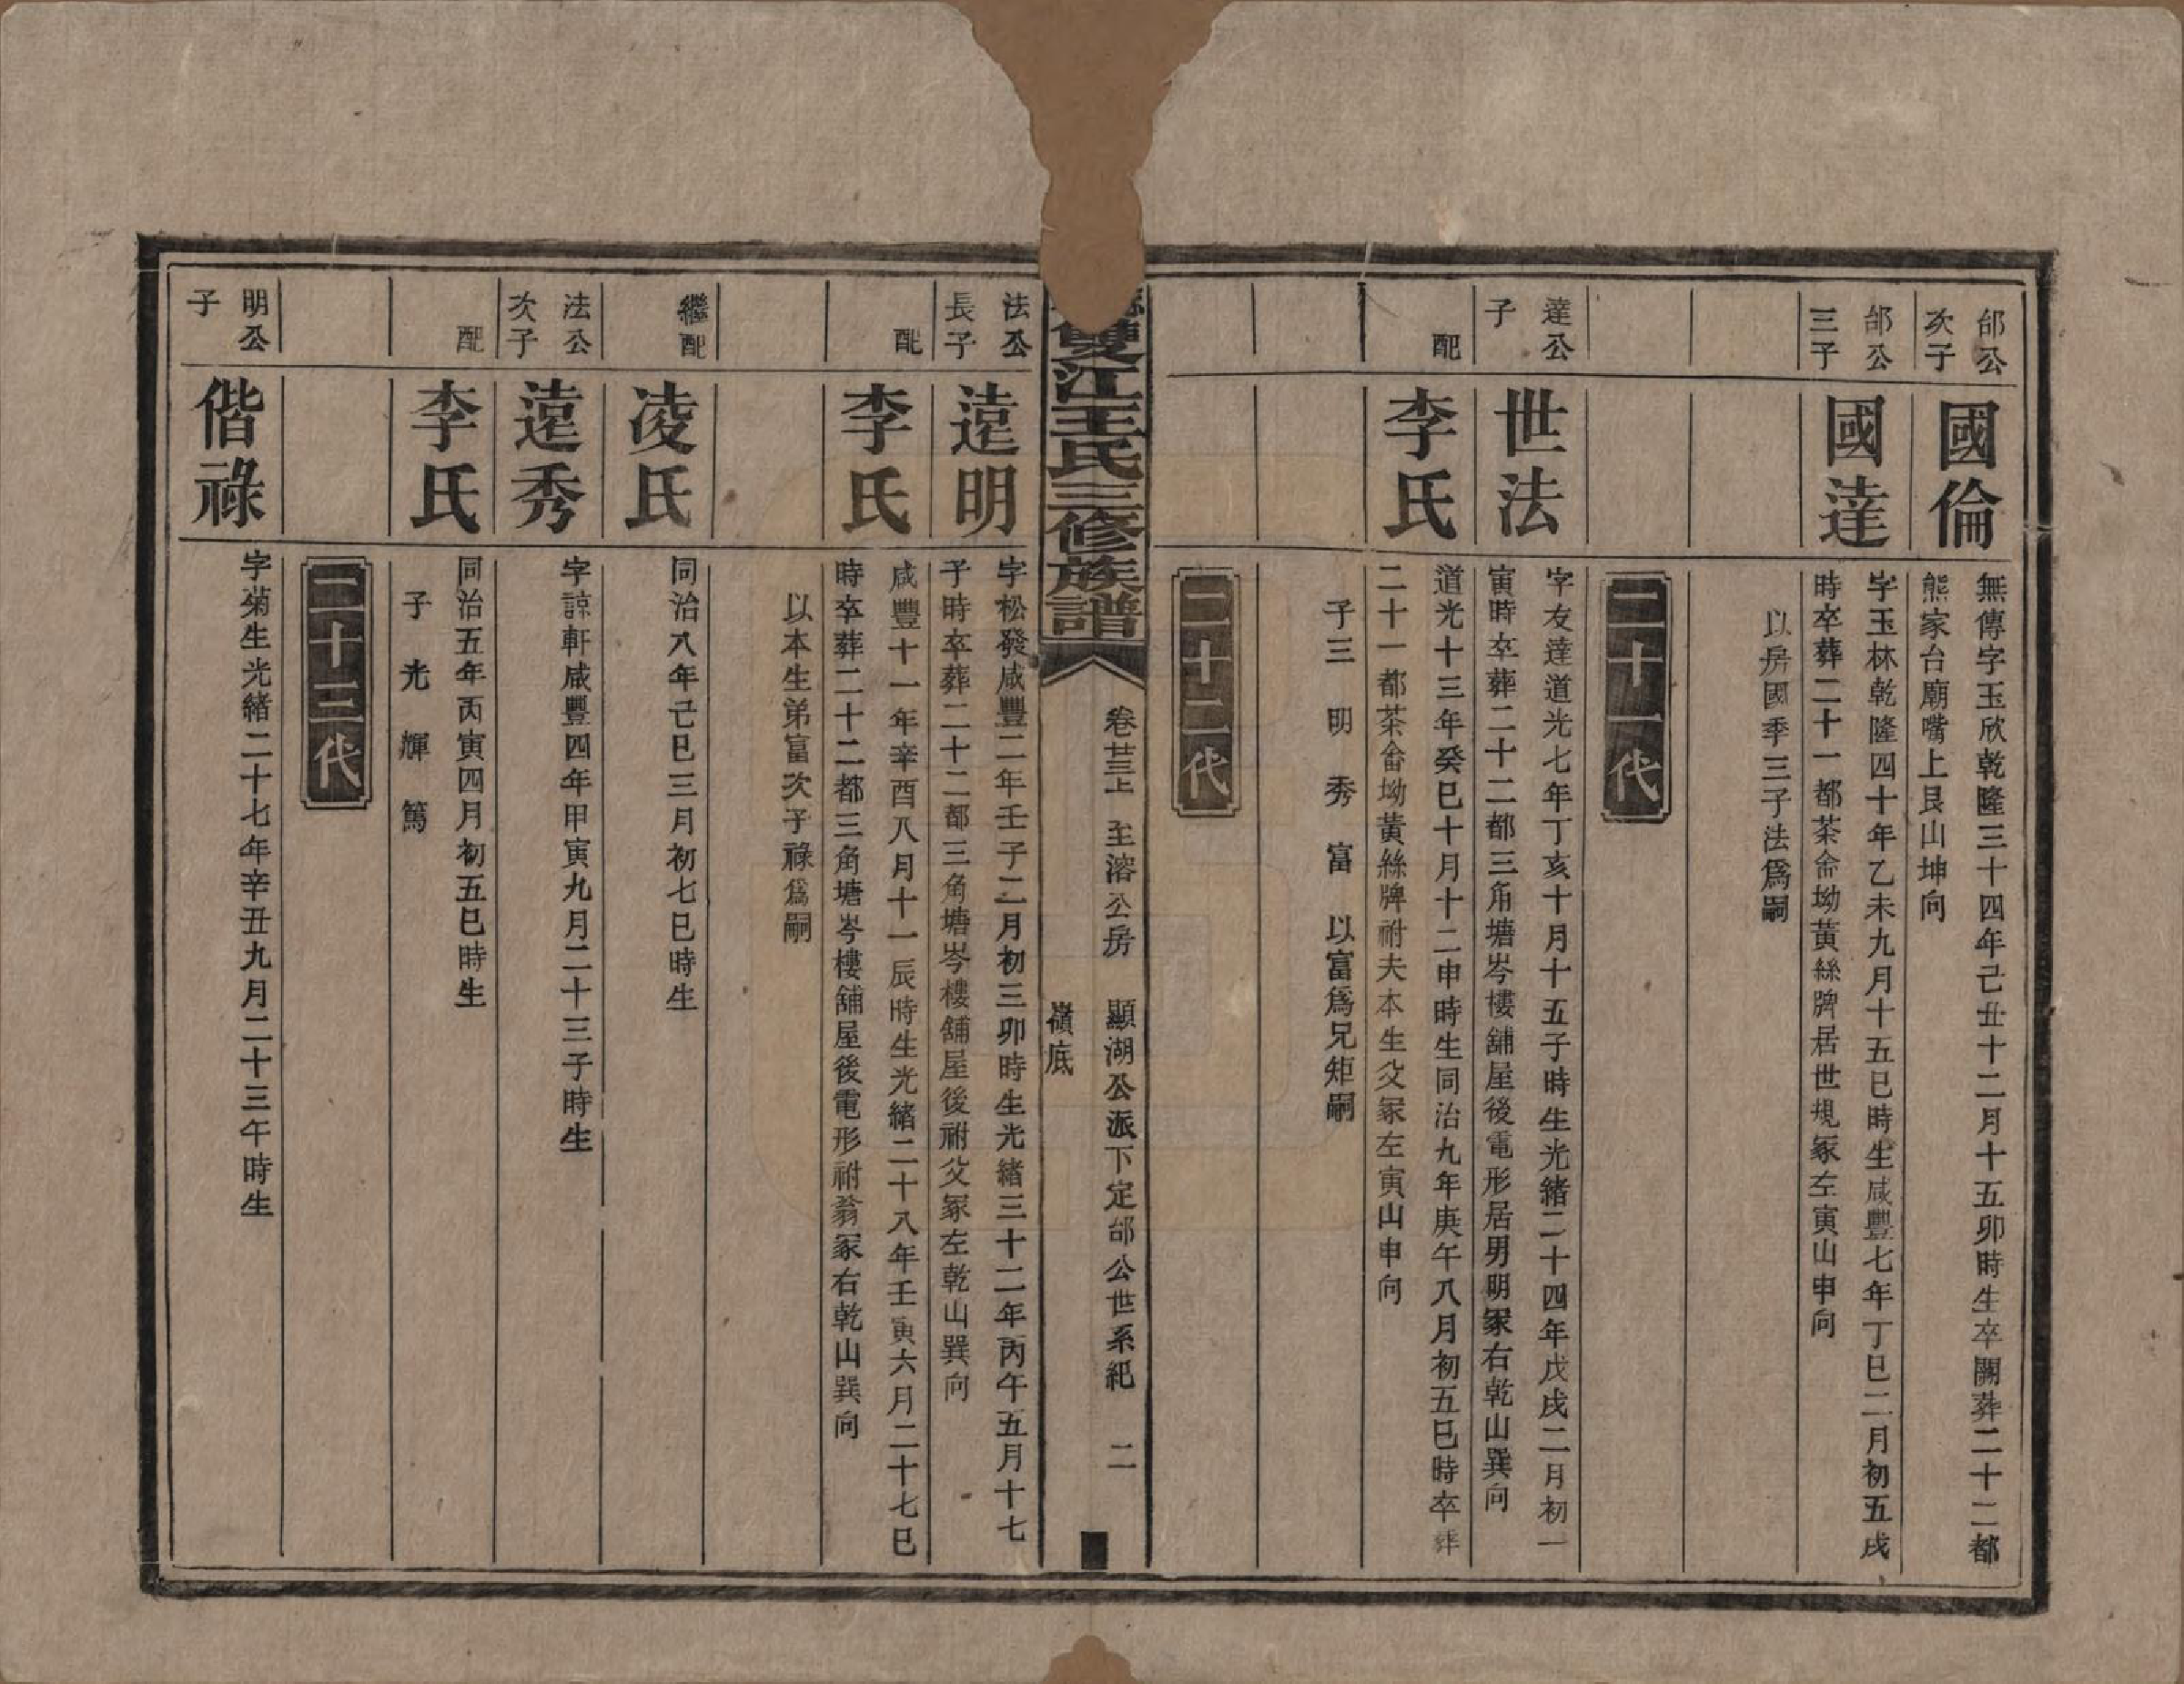 邰公
次子
國倫
無傳字玉欣乾隆三十四年己丑十二月十五卯時生卒闕葬二十二都
熊家台廟嘴上艮山坤向
邰公
三子
國達
字玉林乾隆四十年乙未九月十五巳時生咸豐七年丁巳二月初五戌
時卒葬二十一都茶侖坳黃絲牌居世規冢左寅山申向
以房國季三子法爲嗣
二十一代
達公
子
世法
字友達道光七年丁亥十月十五子時生光緒二十四年戊戌二月初一
寅時卒葬二十二都三角塘岑樓舖屋後電形居男明冢右乾山巽向
配
李氏
道光十三年癸巳十月十二申時生同治九年庚午八月初五巳時卒葬
二十一都茶畬坳黃絲牌祔夫本生父冢左寅山申向
子三 明 秀 富 以富爲兄矩嗣
二十二代
雙江王氏三修族譜
卷廿三上 至溶公房 顯湖公派下定邰公世系紀 二
嶺底
法公
長子
遠明
字松發咸豐二年壬子二月初三卯時生光緒三十二年丙午五月十七
子時卒葬二十二都三角塘岑樓舖屋後祔父冢左乾山巽向
配
李氏
咸豐十一年辛酉八月十一辰時生光緒二十八年壬寅六月二十七巳
時卒葬二十二都三角塘岑樓舖屋後電形祔翁冢右乾山巽向
以本生弟富次子祿爲嗣
繼配
凌氏
同治八年己巳三月初七巳時生
法公
次子
遠秀
字諒軒咸豐四年甲寅九月二十三子時生
配
李氏
同治五年丙寅四月初五巳時生
子 光 輝 篤
二十三代
明公
子
偕祿
字菊生光緒二十七年辛丑九月二十三午時生